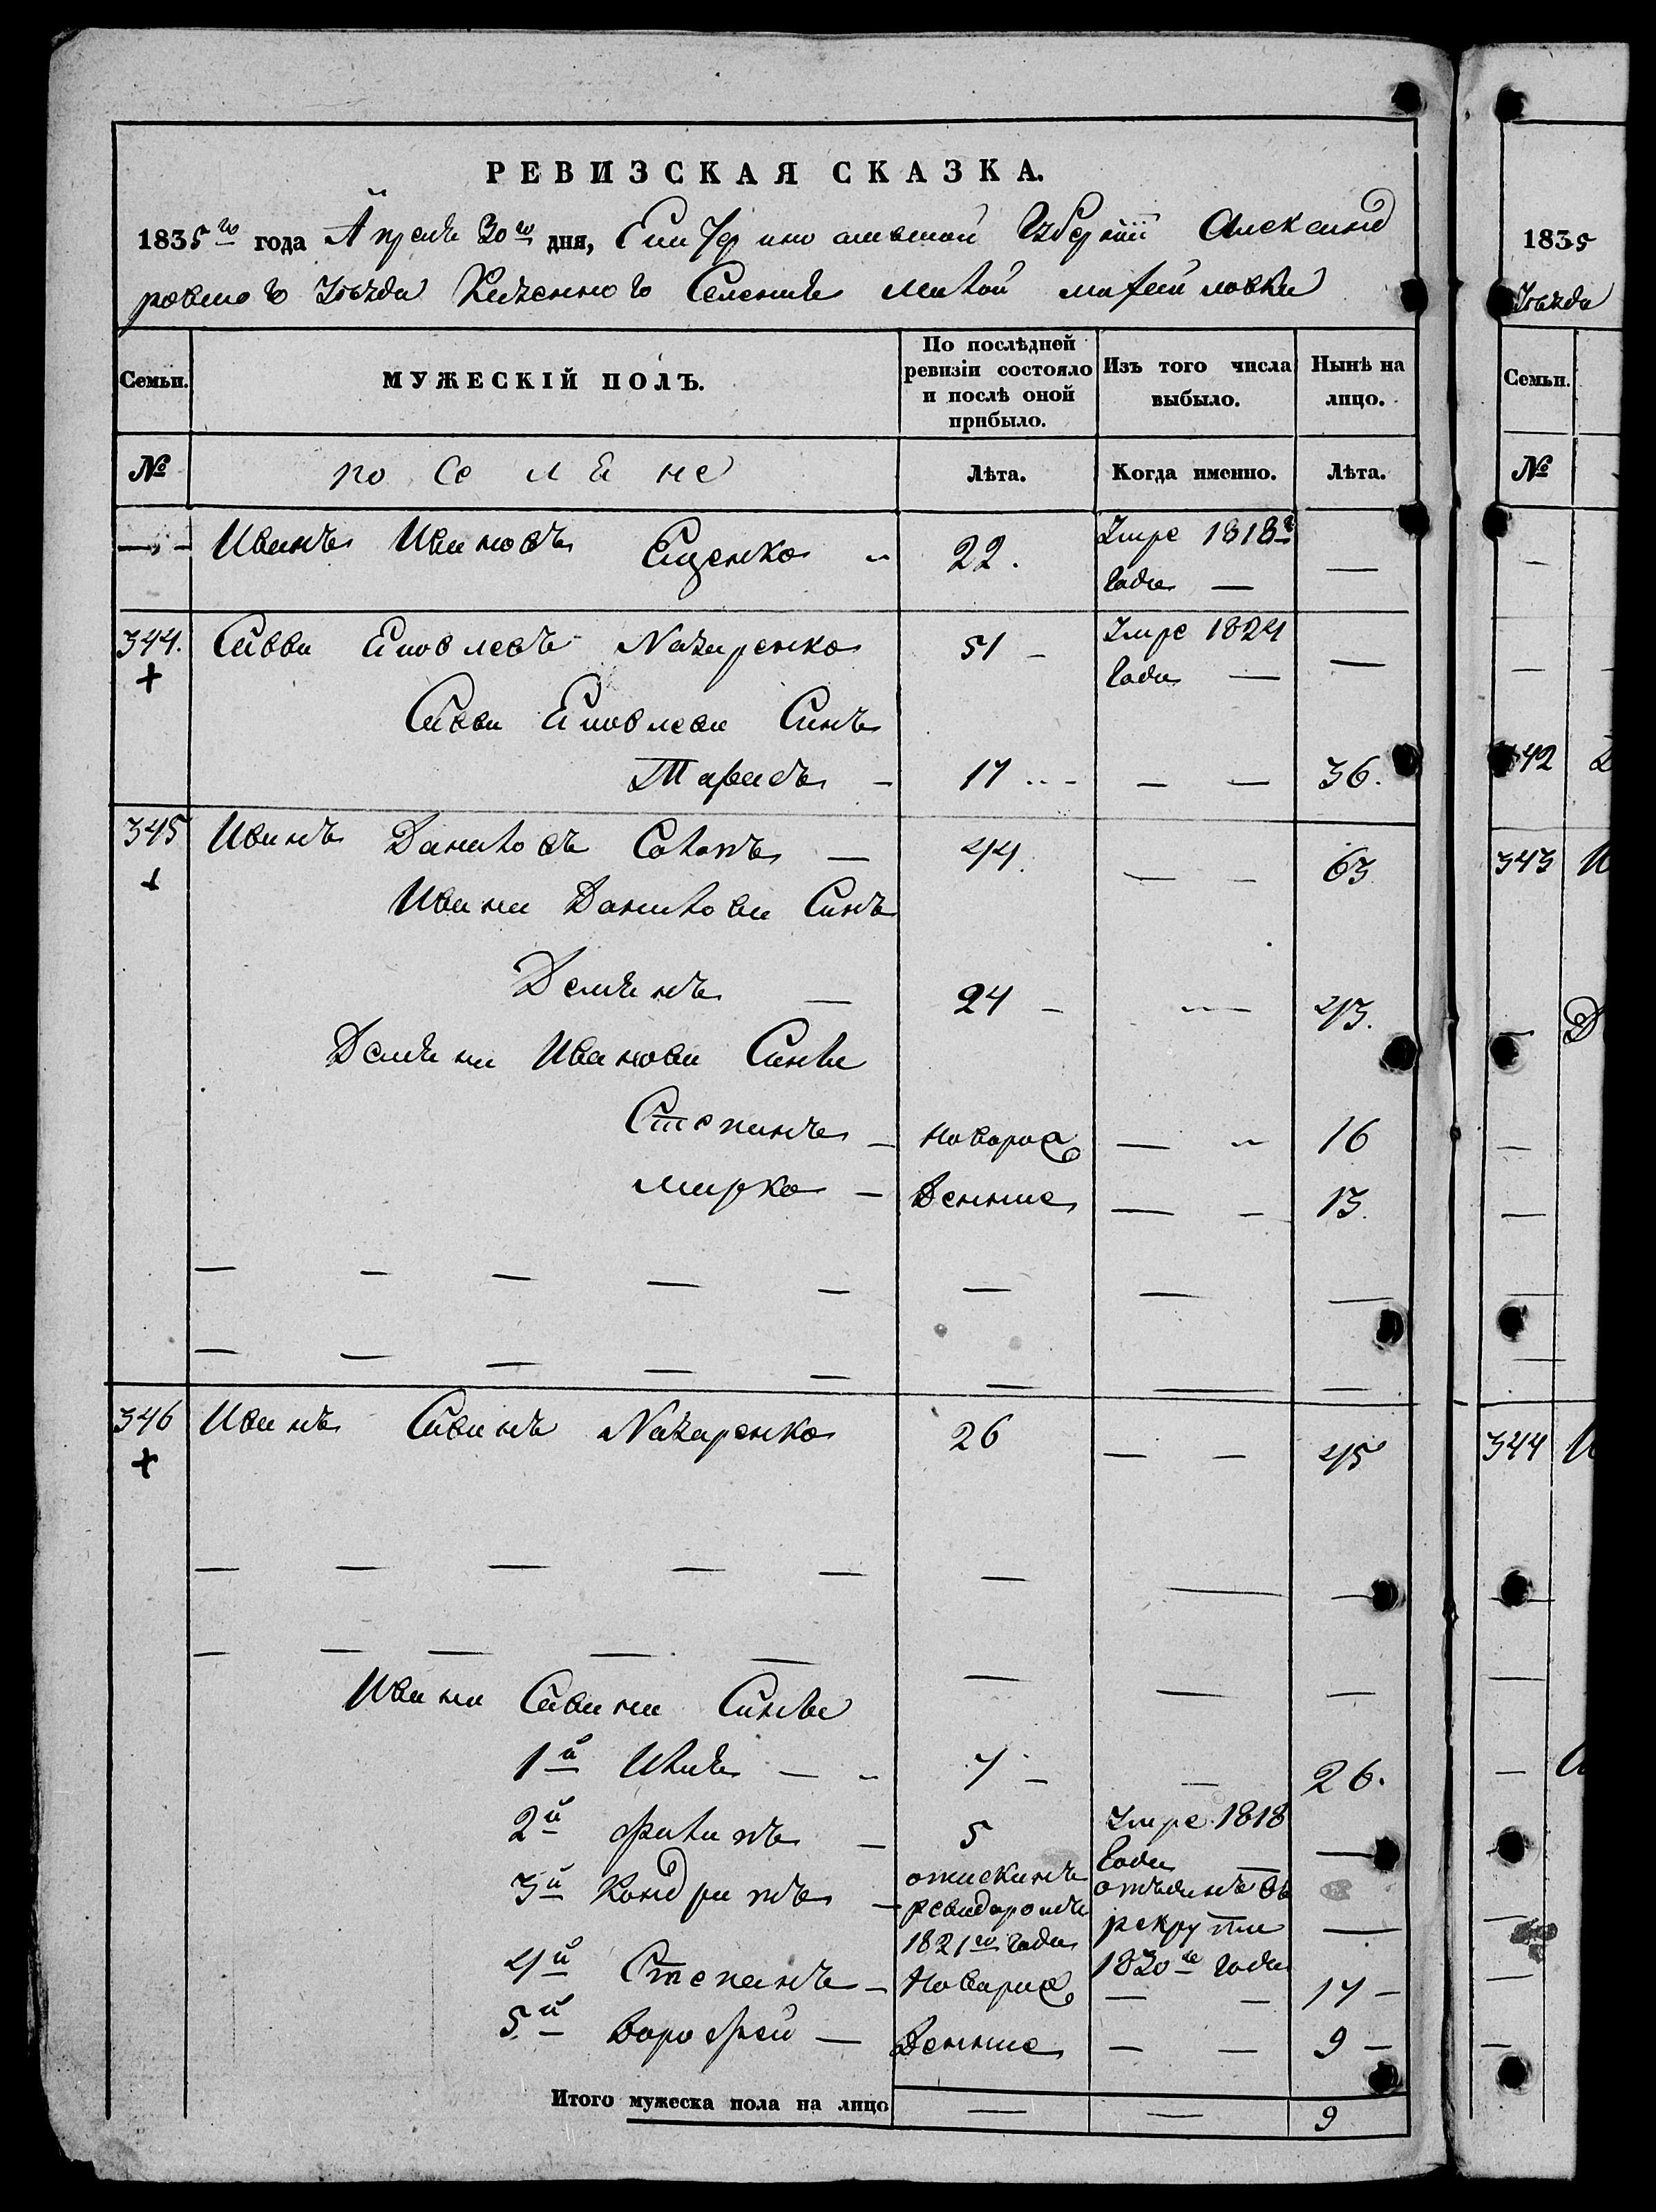 РЕВИЗСКАЯ СКАЗКА.
1835го года Апреля 30го дня, Екатериносла[вской] Губернии Александ
ровского Уезда Казенного Селения Малой Михайловки
Семьи.
МУЖЕСКІЙ ПОЛЪ.
По послѣдней
ревизіи состояло
и послѣ оной
прибыло.
Изъ того числа
выбыло.
Нынѣ на
лицо.
№
поселяне
Лѣта.
Когда именно.
Лѣта.
Иванъ Ивановъ Ещенко 22. Умре 1818г
года —
344. Савва Яковлевъ Назаренко 51 — Умре 1824
года —
Саввы Яковлева Синъ
Тарасъ — 17 — — 36.
345 Иванъ Даниловъ Солопъ — 44. — — 63
Ивана Данилова Синъ
Демянъ — 24 — — 43.
Демяна Иванова Сины
Степанъ — новорож — — 16
Марко — Денние — — 13.
346 Иванъ Савинъ Назаренко 26 — — 45
Ивана Савина Сины
1й Илия — 7 — — 26.
2й Филипъ — 5 Умре 1818
года —
3й Кондратъ — отисканъ отъданъ въ
рекруты —
1821го года 1830го года
4й Степанъ — Новорож — — 17 —
5й Дорофей — Денние — — 9 —
Итого мужеска пола на лицо — — 9
1835
Уезда
Семьи.
№
342
343
344